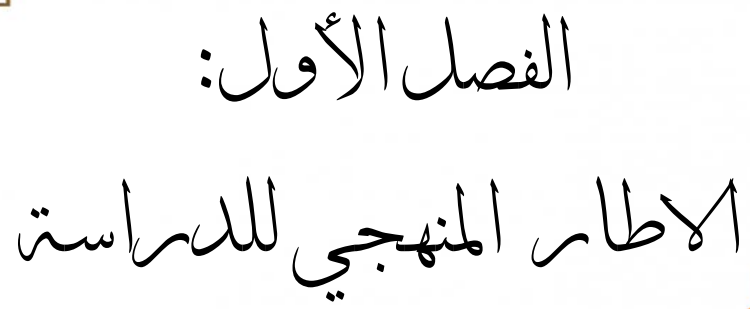 الفصل الأول:
الاطار المنهجي للدراسة